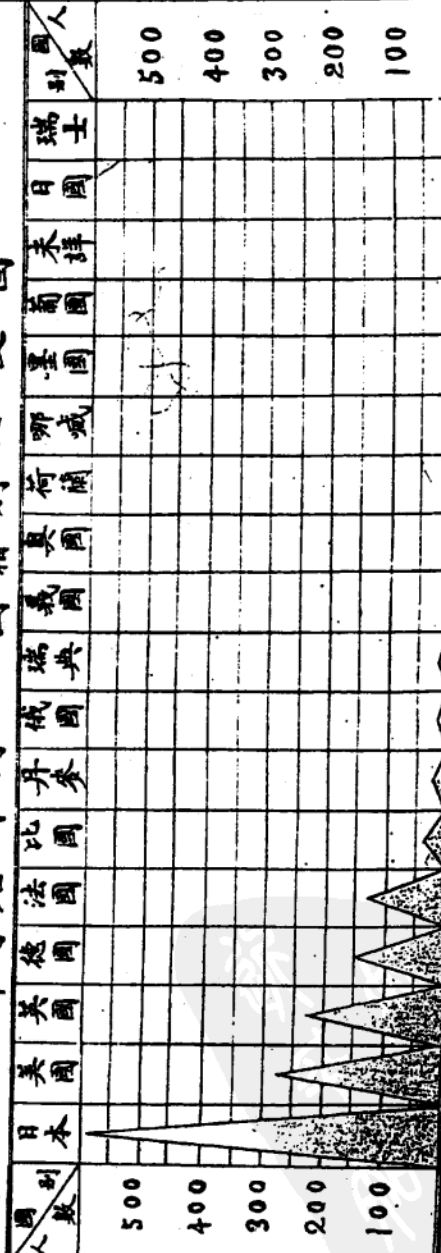 國別
人數
日本
美國
英國
德國
法國
比國
丹麥
俄國
瑞典
義國
奥國
荷蘭
哪威
墨國
葡國
未詳
日國
瑞士
國別
人數
500
400
300
200
100
500
400
300
200
100